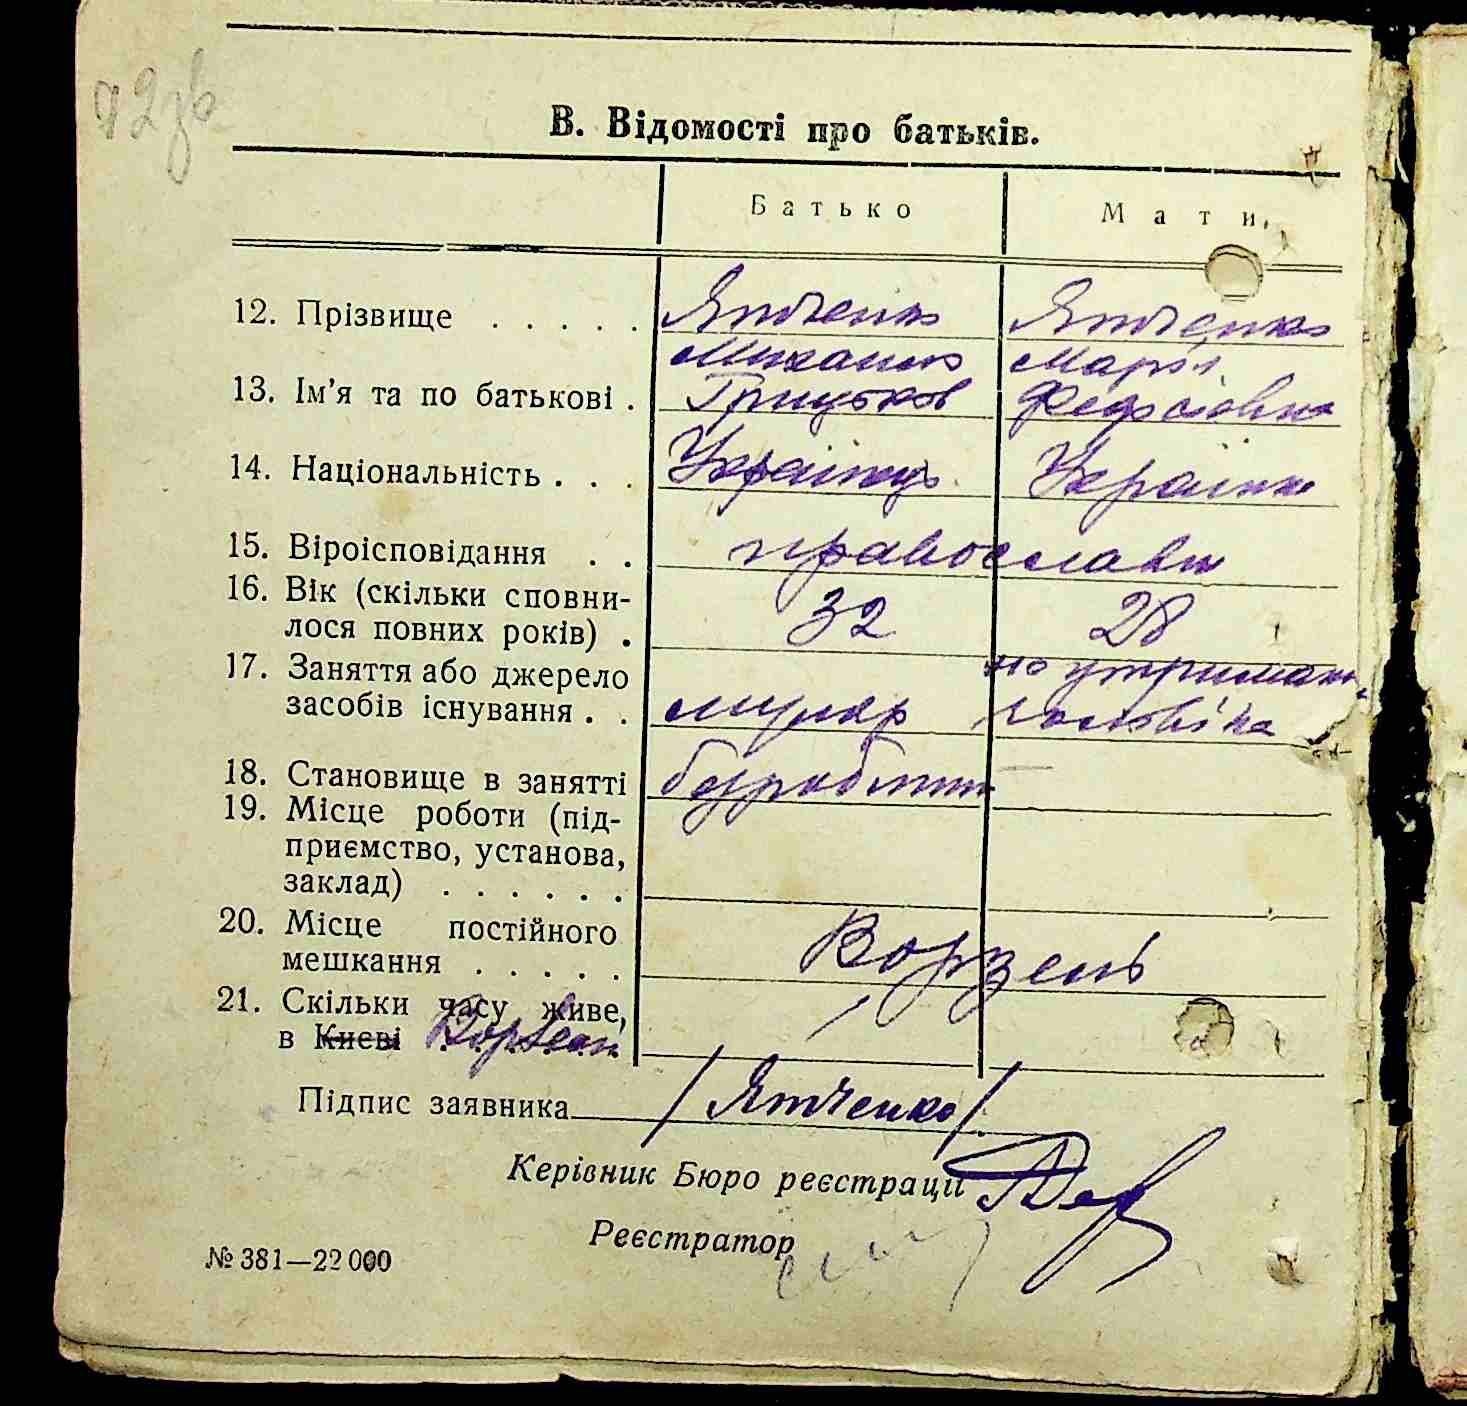 В. Відомості про батьків.
Батько Мати
12. Прізвище . . . . . Ятченко Ятченко
Михайло Марія
13. Ім'я та по батькові . Грицьков Федосіевна
14. Національність . . . Українець Українка
15. Віроісповідання . . православн
16. Вік (скільки сповни- 32 28
лося повних років) .
17. Заняття або джерело на утриман.
засобів існування . . муляр чоловіка
18. Становище в занятті безробітн. —
19. Місце роботи (під-
приємство, установа,
заклад) . . . . . .
20. Місце постійного
мешкання . . . . . Ворзель
21. Скільки часу живе,
в Києві Ворзелі
Підпис заявника /Ятченко/
Керівник Бюро реєстрації
Реєстратор
№ 381—22 000